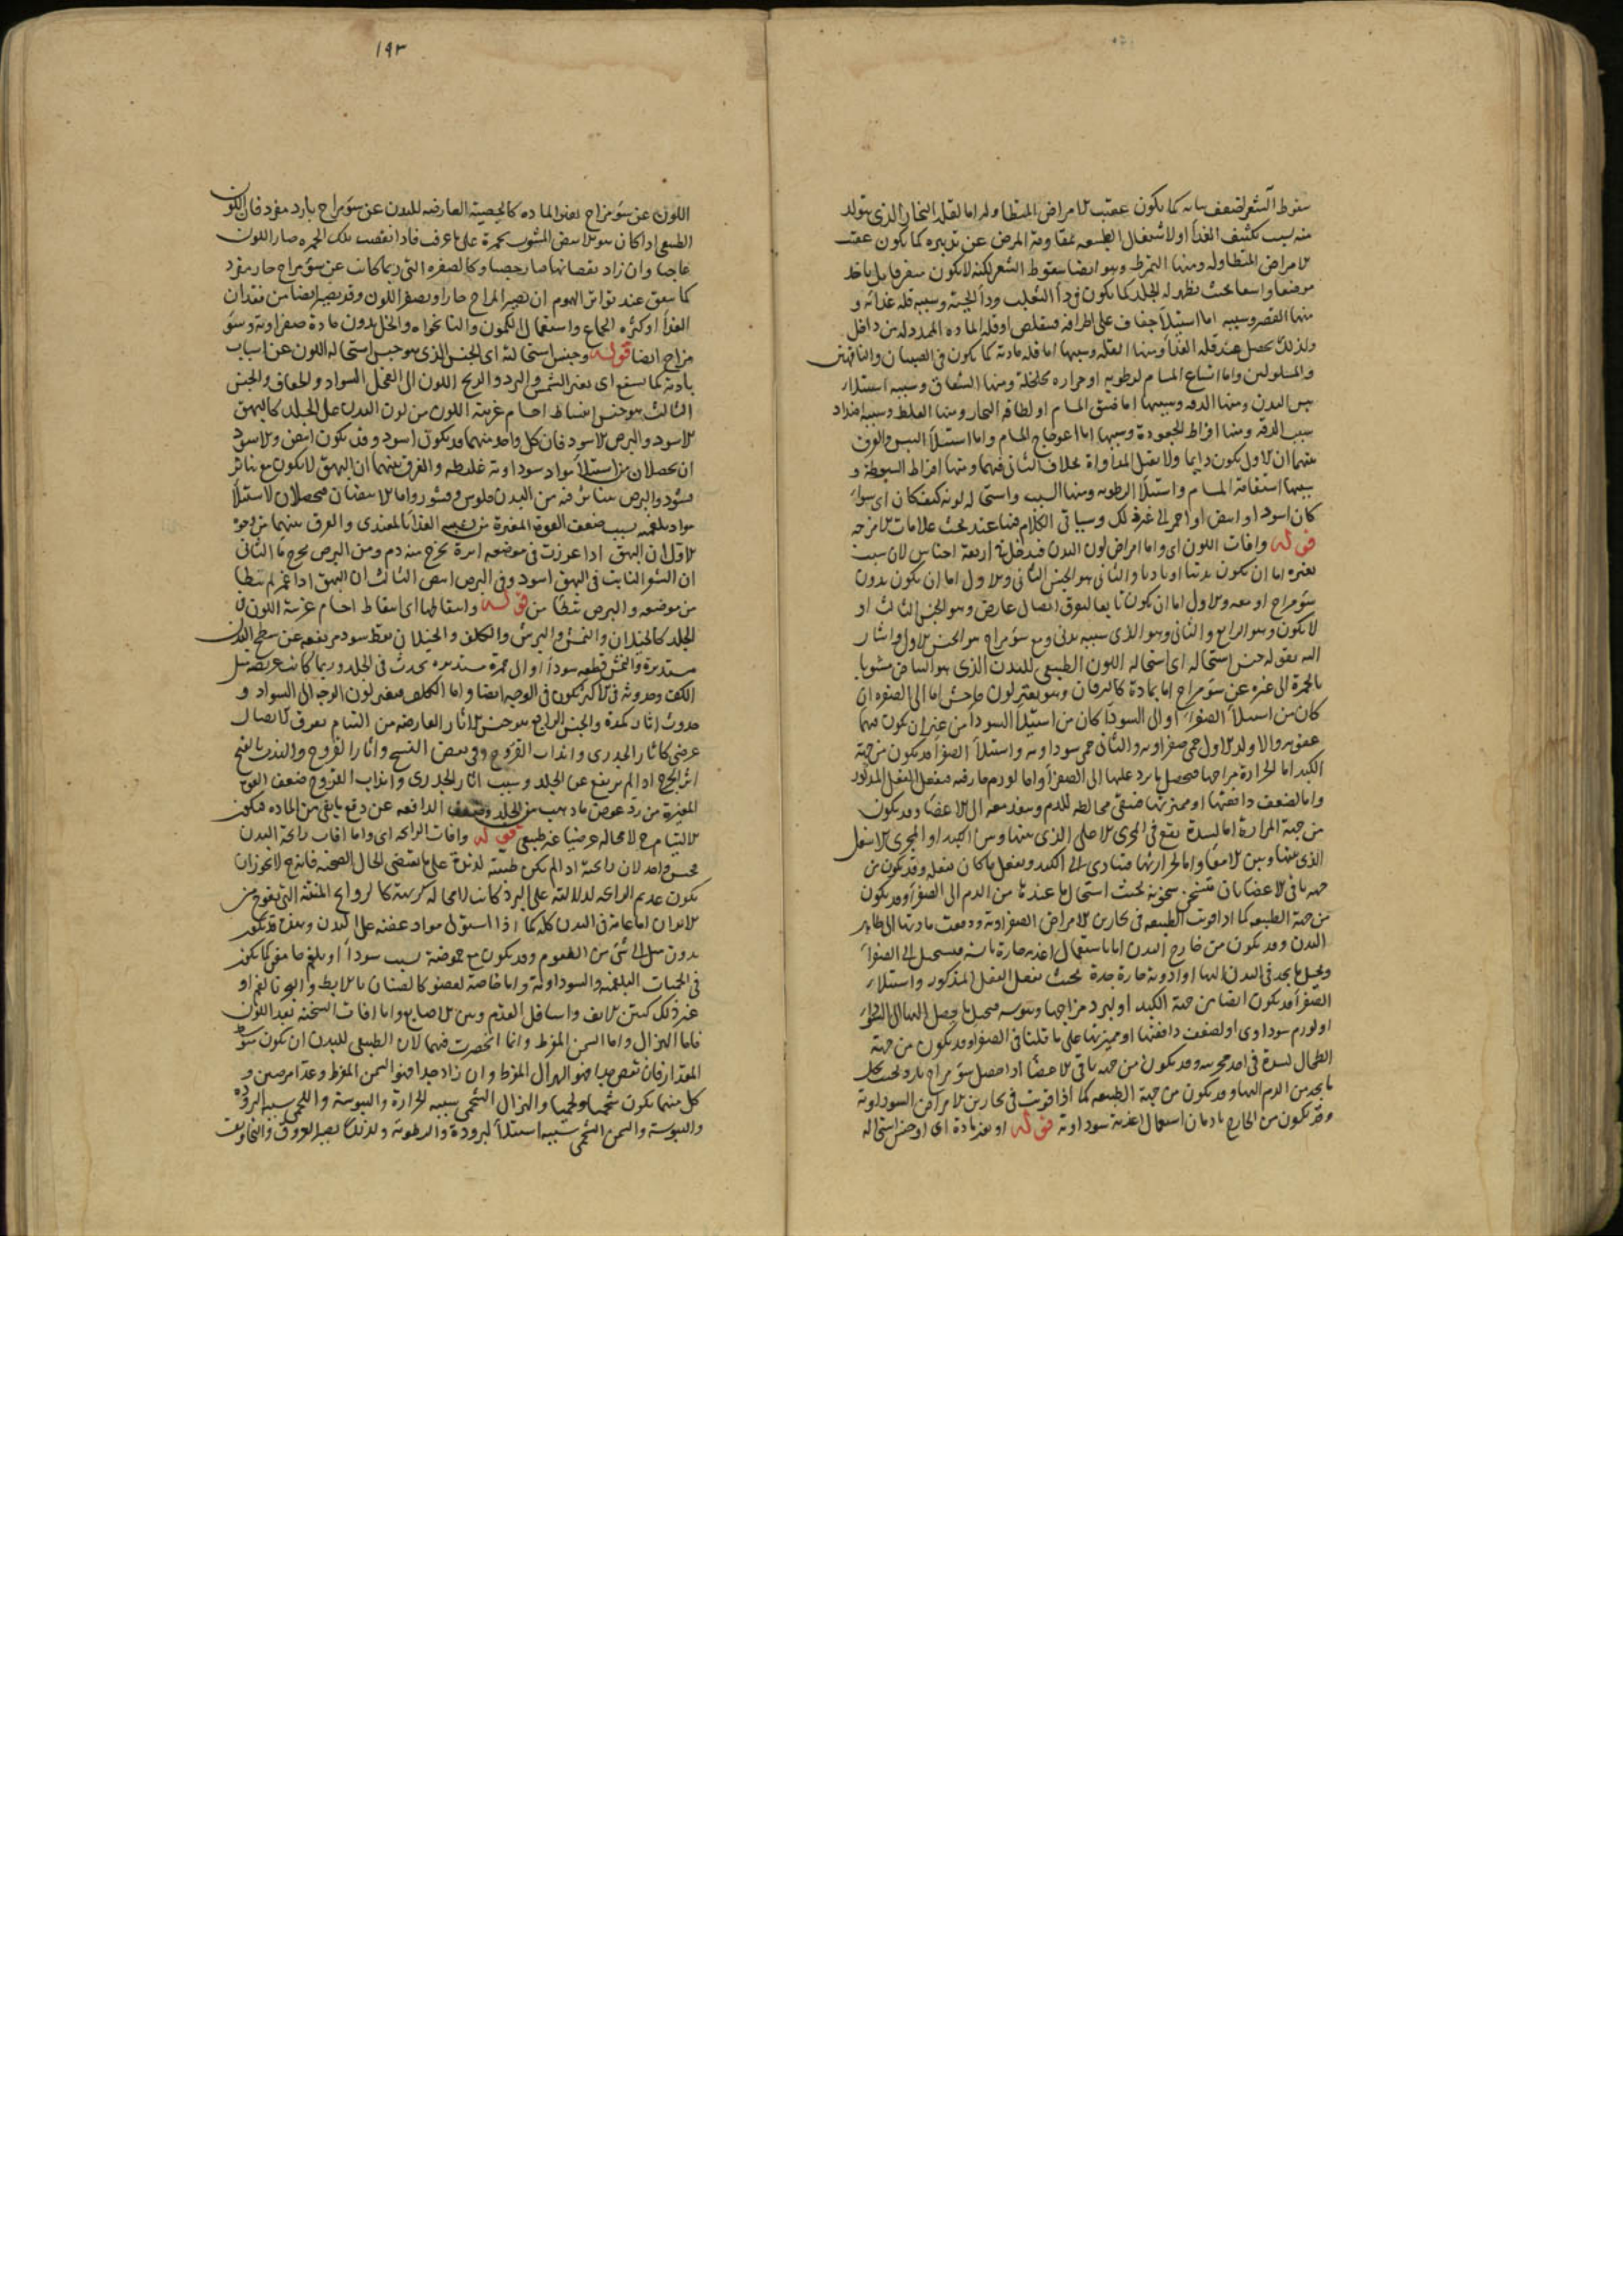 سقوط الشعر لضعف نباته كما يكون عقيب الامراض المتطاوله اما لقلة البخار الذي يتولد
منه بسبب تكثيف الغذا او لاشتغال الطبيعه بمقاومة المرض عن تدبيره كما يكون عقيب
الامراض المتطاوله ومنها التمرط وهو ايضا سقوط الشعر لكنه لا يكون متفرقا بل ياخذ
موضعا واسعا بحيث يظهر له الجلد كما يكون في دآ الثعلب ودآ الحية وسببه قلة غذائه و
منها القصر وسببه اما استيلآ جفاف على اطرافه فيتقلص او قلة المادة الممددة له من داخل
ولذلك يحصل عند قلة الغذآ ومنها القلة وسببها اما قلة مادته كما يكون في الصبيان والناقهين
والمسلولين واما اتساع المسام لرطوبه او حراره مخلخلة ومنها الشقاق وسببه استيلاء
يبس البدن ومنها الدقه وسببها اما ضيق المسام او لطافه البخار ومنها الغلظ وسببه اضداد
سبب الدقه ومنها افراط الجعودة وسببها اما اعوجاج المسام واما استيلآ اليبس والفرق
بينهما ان الاول يكون دايما ولا يقبل المداواة بخلاف الثاني فيهما ومنها افراط السبوطة و
سببها استقامة المسام واستيلآ الرطوبه ومنها الشيب واستحاله لونه كيف كان اي سوآء
كان اسود او ابيض او احمر الى غير ذلك وسياتي الكلام فيها عند بحث علامات الامزجه
قوله وافات اللون اي واما امراض لون البدن فيدخل في اربعة اجناس لان سبب
تغيره اما ان يكون بدنيا او باديا والثاني هو الجنس الثاني والاول اما ان يكون بدون
سوء مزاج او معه والاول اما ان يكون تابعا لتفرق اتصال عارض وهو الجنس الثالث او
لا يكون وهو الرابع والثاني وهو الذي سببه بدني ومع سوء مزاج هو الجنس الاول واشار
اليه بقوله جنس استحاله اي استحاله اللون الطبيعي للبدن الذي هو البياض مشوبا
بالحمرة الى غيره عن سوء مزاج اما بمادة كاليرقان وهو تغير لون فاحش اما الى الصفره ان
كان من استيلآ الصفرآء او الى السوداء كان من استيلآ السودآ من غير ان يكون فيهما
عفونه والا ولد الاول حمى صفراويه والثاني حمى سوداويه واستيلآ الصفرآ قد يكون من جهة
الكبد اما لحرارة مزاجها فتحيل ما يرد عليها الى الصفرآ واما لورم حار فيه فيفعل الفعل المذكور
واما لضعف دافعتها او مميزتها فتبقى مخالطه للدم وينفذ معه الى الاعضا وقد يكون
من جهة المرارة اما لسدة تقع في المجرى الاصلي الذي بينها وبين الكبد او المجرى الاسفل
الذي بينها وبين الامعآ واما لحرارتها فيتادى الى الكبد ويفعل ما كان تفعله وقد يكون من
جهة باقي الاعضا بان تسخن سخونه بحيث استحال ما عندها من الدم الى الصفرآ وقد يكون
من جهة الطبيعه كما اذا قويت الطبيعه في بحارين الامراض الصفراويه ودفعت مادتها الى ظاهر
البدن وقد يكون من خارج البدن اما باستعمال اغذيه حارة يابسه فيستحيل الى الصفرآء
ويحيل ما يجد في البدن اليها او ادوية حارة جدة بحيث تفعل الفعل المذكور واستيلاء
الصفرآ قد يكون ايضا من جهة الكبد او لبرد مزاجها ويبوسه فتحيل ما يحصل اليها الى السودآء
او لورم سوداوي او لضعف دافعتها او مميزتها على ما قلنا في الصفرا وقد يكون من جهة
الطحال لسدة في احد مجرييه وقد يكون من جهة باقي الاعضآ اذا حصل سوء مزاج بارد بحيث يحيل
ما يجد من الدم اليها وقد يكون من جهة الطبيعه كما اذا قويت في بحارين الامراض السوداوية
وقد يكون من الخارج بادمان استعمال اغذية سوداوية قوله او بغير مادة اي او جنس استحاله
١٩٣
اللون عن سوء مزاج بغير المادة كالجصية العارضه للبدن عن سوء مزاج بارد مفرد فان اللون
الطبيعي اذا كان هو الابيض المشوب بحمرة على ما عرف فاذا نقصت تلك الحمره صار اللون
عاجيا وان زاد نقصانها صار جصيا وكالصفره التي ربما كانت عن سوء مزاج حار مفرد
كما يتفق عند تواتر الهموم ان يصير المزاج حارا ويصفر اللون وقد يصير ايضا من فقدان
الغذآ او كثرة الجماع واستعمال الكمون والنانخواه والخل بدون مادة صفراوية وسوء
مزاج ايضا قوله وجنس استحالة اي الجنس الذي هو جنس استحاله اللون عن اسباب
بادية كما يسفع اي يغير الشمس والبرد والريح اللون الى القحل السواد والجفاف والجنس
الثالث هو جنس انبساط اجسام غريبة اللون من لون البدن على الجلد كالبهق
الاسود والبرص الاسود فان كل واحد منهما قد يكون اسود وقد يكون ابيض والاسود
ان يحصلان من استيلآ مواد سوداوية غليظه والفرق بينهما ان البهق لا يكون مع تناثر
قشور والبرص يتناثر فيه من البدن فلوس وقشور واما الابيضان فيحصلان لاستيلآ
مواد بلغميه بسبب ضعف القوة المغيرة من تشبيه الغذآ بالمغتذي والفرق بينهما من وجوه
الاول ان البهق اذا غرزت في موضعه ابرة يخرج منه دم ومن البرص يخرج مآ الثاني
ان الشعر النابت في البهق اسود وفي البرص ابيض الثالث ان البهق اذا غمز لم يتطا
من موضعه والبرص يتطا من قوله واسقاطها اي اسقاط اجسام غريبة اللون في
الجلد كالخيلان والنمش والبرش والكلف والخيلان نقط سود مرتفعه عن سطح البدن
مستديرة والنمش قطعه سودآ او الى حمرة مستديره يحدث في الجلد وربما كانت عريضه مثل
الكف وحدوثه في الاكثر يكون في الوجه ايضا واما الكلف فتغير لون الوجه الى السواد و
حدوث اثار كمدة والجنس الرابع هو جنس الاثار العارضه من التيام تفرق الاتصال
عرضي كاثار الجدري وانداب القروح وفي بعض النسخ واثار القروح والندب بالفتح
اثر الجرح اذا لم يرتفع عن الجلد وسبب اثار الجدري وانداب القروح ضعف القوة
المغيرة من رد عوض ما ذهب من الجلد وضعف الدافعه عن دفع ما بقى من المادة فيكون
الالتيام ح لا محاله عرضيا غير طبيعي قوله وافات الرائحه اي واما افات رائحة البدن
فجنس واحد لان رائحة اذا لم يكن طيبة لذيذة على ما يقتضي الحال الصحية فانه ح لا يجوز ان
يكون عديم الرائحه لدلالته على البرد كانت لا محاله كريهة كالروايح المنتنة التي تفوح من
الابدان اما عامة في البدن كله كما اذا استولى مواد عفنة على البدن وهو قد يكون
بدون ميل الى شئ من الطعوم وقد يكون مع حموضة بسبب سودآ او بلغم حامض كما يكون
في الحميات البلغميه والسوداوية واما خاصة لعضو كالصنان بالابط والبخر بالفم او
غير ذلك كنتن الانف واسافل القدم وبين الاصابع واما افات السحنة بعد اللون
فاما الهزال واما السمن المفرط وانما انحصرت فيهما لان الطبيعي للبدن ان يكون متوسط
المقدار فان نقص جدا فهو الهزال المفرط وان زاد جدا فهو السمن المفرط وعدا مرضين و
كل منهما يكون شحميا ولحميا والهزال الشحمي سببه الحرارة واليبوسة واللحمي سببه البرودة
واليبوسة والسمن الشحمي سببه استيلآ البرودة والرطوبة ولذلك يصير العروق والتجاويف